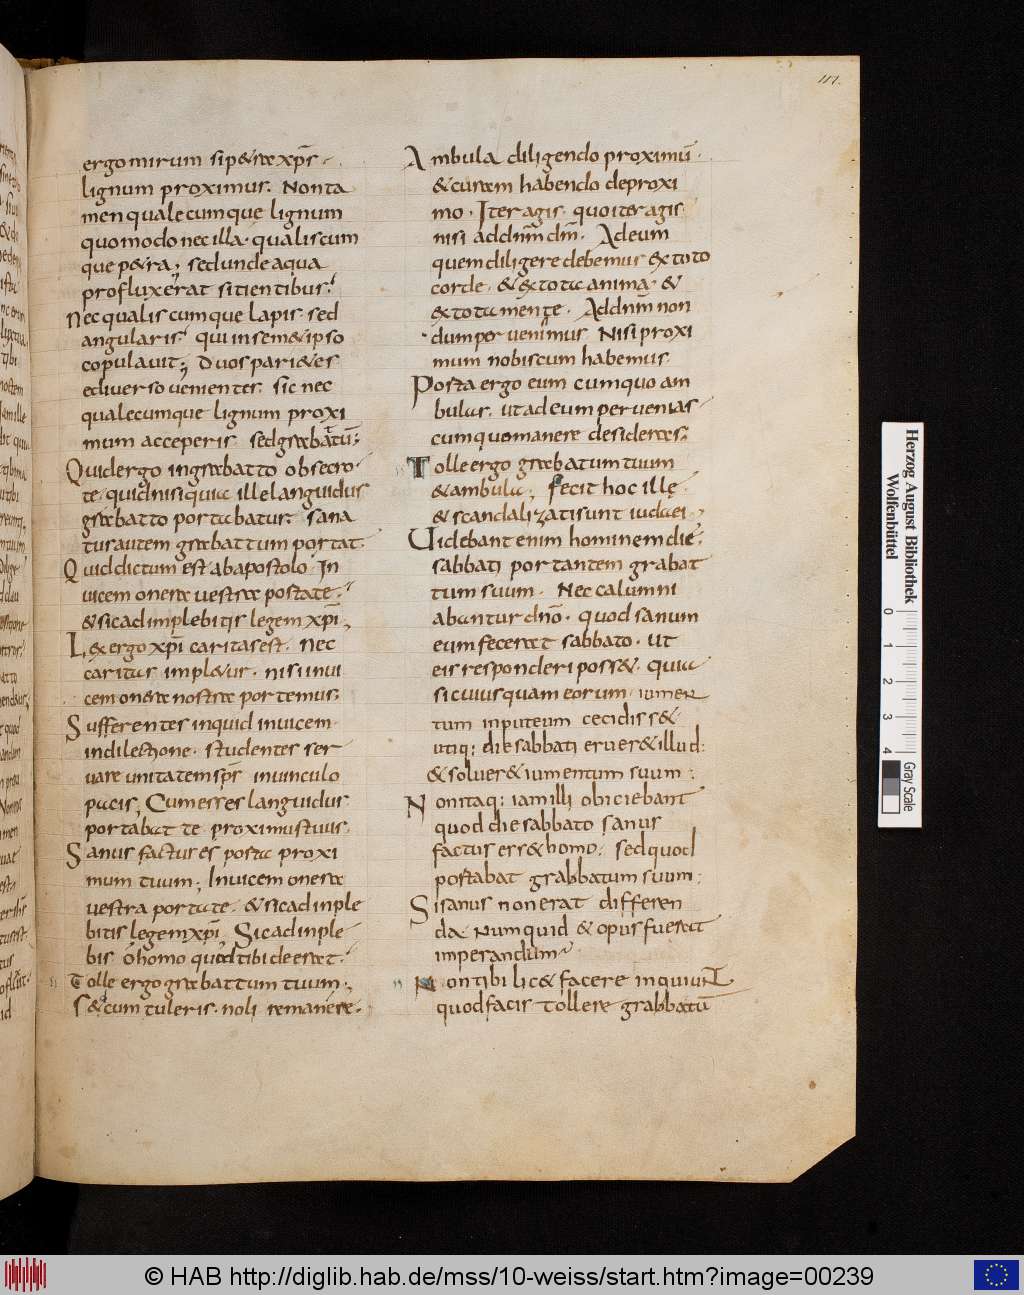 117.
ergo mirum si p&ra xp̄s
lignum proximus. Non ta
men qualecumque lignum
quomodo nec illa qualiscum
que p&ra; sed unde aqua
profluxerat sitientibus
Nec qualiscumque lapis sed
angularis qui in sem&ipso
copulavit; Duos pari&es
ediverso venientes. sic nec
qualecumque lignum proxi
mum acceperis sed grabatū;
Quid ergo in grabatto obsecro
te. quid nisi quia ille languidus
grabatto portabatur. sana
tus autem grabattum portat.
Quid dictum est ab apostolo In
vicem onera vestra portate.
& sic adimplebitis legem xp̄i,
L& ergo xp̄i caritas est. nec
caritas impl&ur. nisi invi
cem onera nostra portemus.
Sufferentes inquid invicem
in dilectione. studentes ser
vare unitatem sp̄s in vinculo
pacis; Cum esses languidus
portabat te proximus tuus.
Sanus factus es porta proxi
mum tuum; Invicem onera
vestra portate. & sic adinple
bitis legem xp̄i, Sic adinple
bis ō homo quod tibi deerat.
Tolle ergo grabattum tuum.,
S& cum tuleris. noli remanere.
Ambula diligendo proximū.
& curam habendo de proxi
mo. Iter agis. quo iter agis
nisi ad dnm̄ dm̄. Ad eum
quem diligere debemus ex toto
corde. & ex tota anima. &
ex tota mente. Ad dnm̄ non
dum pervenimus Nisi proxi
mum nobiscum habemus
Porta ergo eum cum quo am
bulas. ut ad eum pervenias
cum quo manere desideras;
Tolle ergo grabatum tuum
& ambula; fecit hoc ille
& scandalizati sunt iudaei.,
Videbant enim hominem die
sabbati portantem grabat
tum suum. Nec calumni
abantur dnō. quod sanum
eum fecerat sabbato. ut
eis responderi poss&. quia
si cuiusquam eorum iumen
tum in puteum cecidiss&
utiq: die sabbati eruer& illud:
& solver& iumentum suum:
Non itaq: iam illi obiciebant
quod die sabbato sanus
factus ess& homo: sed quod
portabat grabbatum suum:
Si sanus non erat differen
da. Numquid & opus fuerat
imperandum
Non tibi lic& facere inquiunt
quod facis tollere grabbatū
Herzog August Bibliothek
Wolfenbüttel
0 1 2 3 4
Gray Scale
© HAB http://diglib.hab.de/mss/10-weiss/start.htm?image=00239